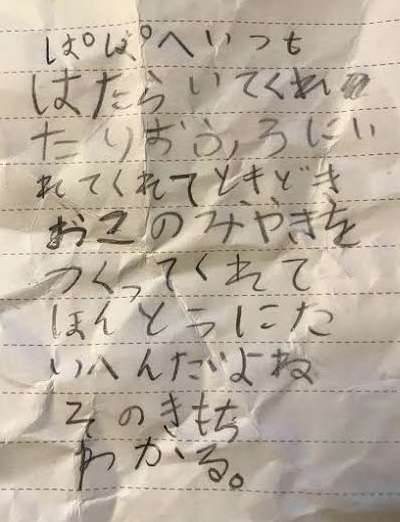 ぱぱへいつも
はたらいてくれ
たりおふろにい
れてくれてときどき
おこのみやきを
つくってくれて
ほんとうにた
いへんだよね
そのきもち
わかる。